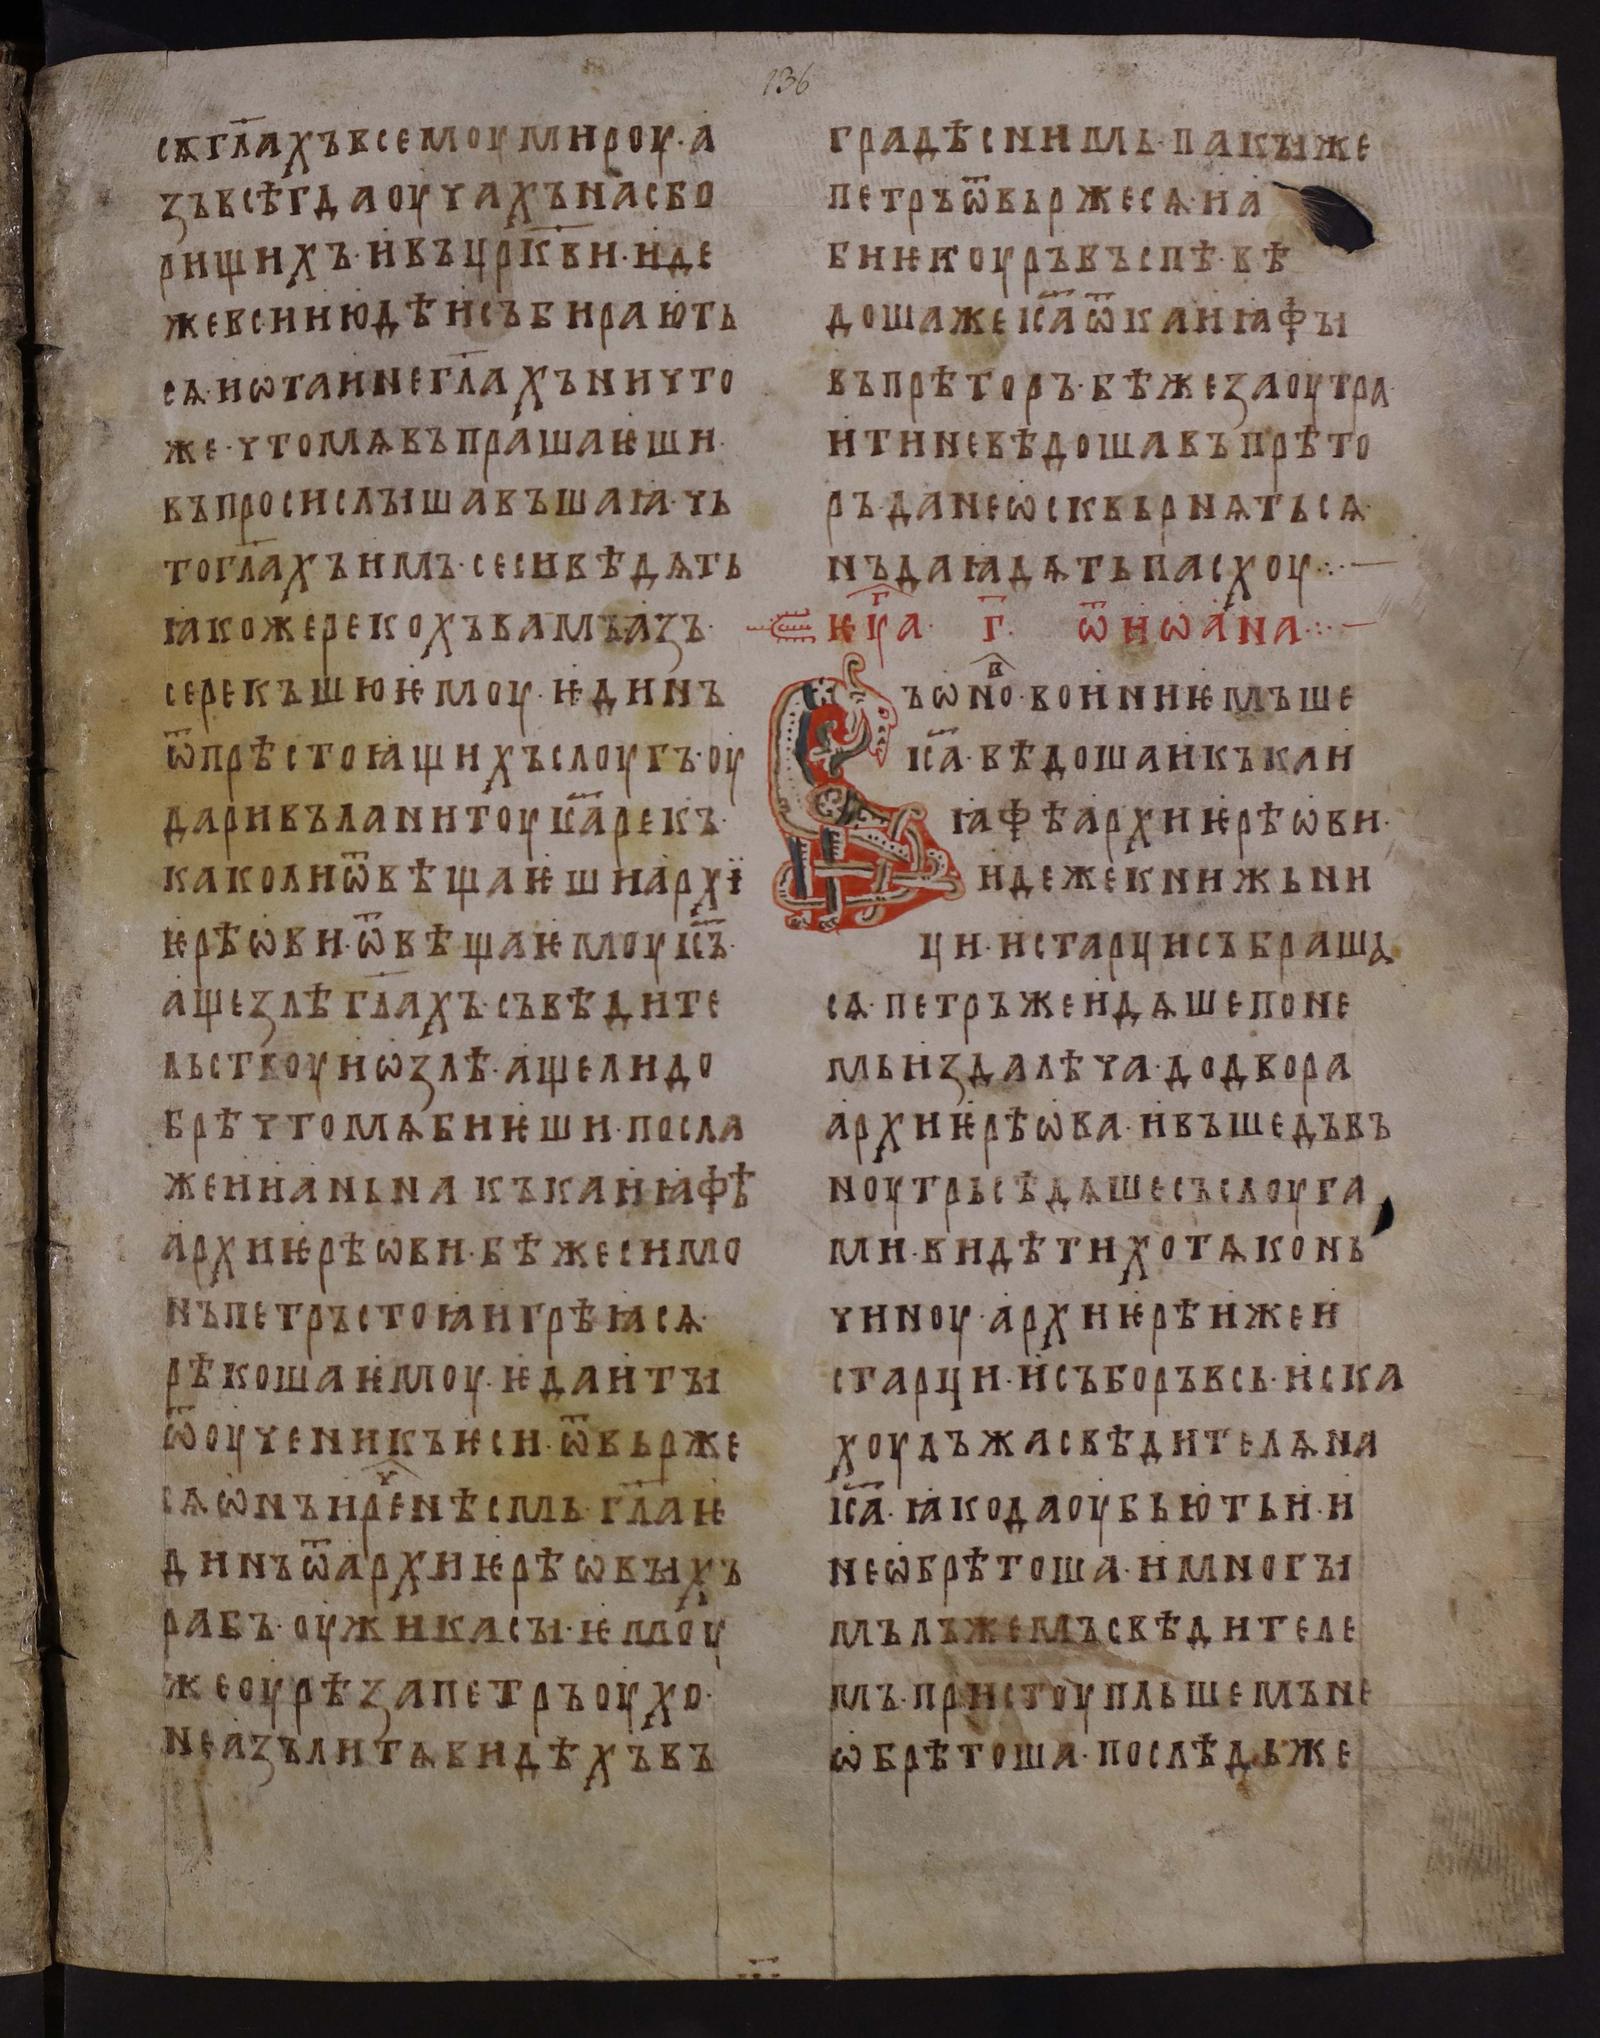 136
сѧ гл҃ахъвсемоумироу· а
зъвсѣгдаоучахънасбо
рищихъ· ивъцр҃кви· иде
жевсииюдѣисъбирають
сѧ· иѡтаинегл҃ахъничто
же· чтомѧвъпрашаѥши·
въпросислышавъшаꙗ· чь
тогл҃ахъимъ· сесивѣдѧть
ꙗкожерекохъвамъазъ·
серекъшюѥмоу· ѥдинъ
ѿпрѣстоꙗщихъслоугъ· оу
даривъланитоуіс҃арекъ·
каколиѿвѣщаѥшиархї
ѥрѣѡви· ѿвѣщаѥмоуіс҃ъ·
ащезлѣгл҃ахъ· съвѣдите
льствоуиѡзлѣ· ащелидо
брѣчтомѧбиѥши· посла
жеиианьнакъкаиꙗфѣ
архиѥрѣѡви· бѣжесимо
нъпетръстоꙗигрѣꙗсѧ·
рѣкошаѥмоу· ѥдаиты
ѿоученикъѥси· ѿвьрже
сѧѡнъиреⷱ҇нѣсмь· гл҃аѥ
динъѿархиѥрѣѡвыхъ
рабъ· оужикасы· ѥмоу
жеоурѣзапетръоухо·
неазълитѧвидѣхъвъ
градѣснимь· пакыже
петръѿвьржесѧ· иа
биѥкоуръвъспѣ· вѣ
дошажеіс҃аѿкаиꙗфы
въпрѣторъ· бѣжезаоутра
итиневѣдошавъпрѣто
ръ· данеѡсквьрнѧтьсѧ·
нъдаꙗдѧтьпасхоу·:·—
ѥуⷢ҇а· г҃· ѿиѡана·:·—
ъѡноⷡ҇· воиниѥмъше
іс҃а· вѣдошаикъкаи
ꙗфѣархиѥрѣѡви·
идежекнижьни
ци· истарцисъбраша
сѧ· петръжеидѧшепоне
мьиздалѣча· додвора
архиѥрѣѡва· ивъшедъвъ
ноутрьсѣдѧшесъслоуга
ми· видѣтихотѧконь
чиноу· архиѥрѣижеи
старци· исъборъвсь· иска
хоулъжасвѣдителѧна
іс҃а· ꙗкодаоубьютьи· и
неѡбрѣтоша· имногы
мълъжемъсвѣдителе
мъ· пристоупльшемъне
ѡбрѣтоша· послѣдьже